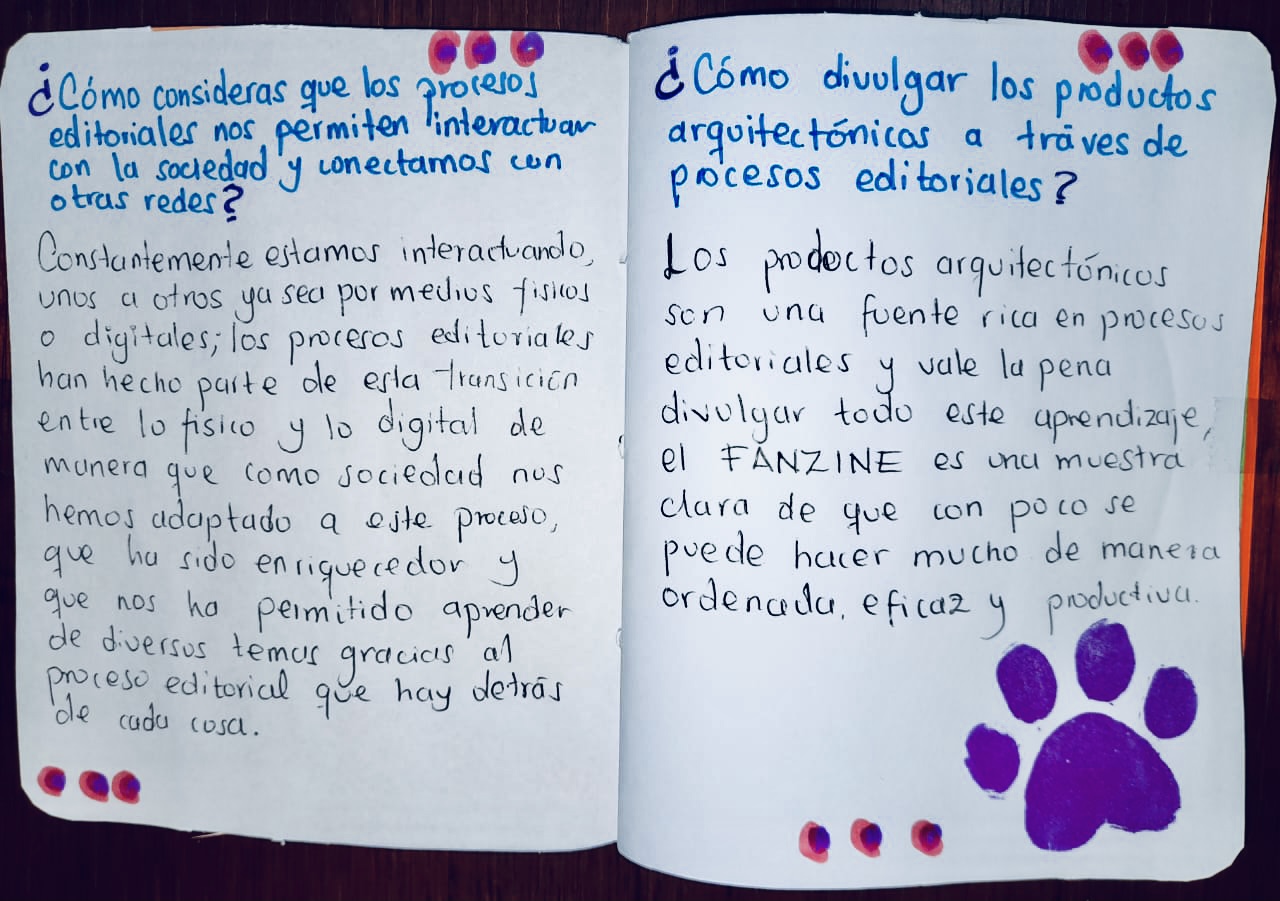 ¿Cómo consideras que los procesos
editoriales nos permiten interactuar
con la sociedad y conectarnos con
otras redes?
Constantemente estamos interactuando,
unos a otros ya sea por medios fisicos
o digitales; los procesos editoriales
han hecho parte de esta transición
entre lo fisico y lo digital de
manera que como sociedad nos
hemos adaptado a este proceso,
que ha sido enriquecedor y
que nos ha permitido aprender
de diversos temas gracias al
proceso editorial que hay detrás
de cada cosa.
¿Cómo divulgar los productos
arquitectónicos a tráves de
procesos editoriales?
Los productos arquitectónicos
son una fuente rica en procesos
editoriales y vale la pena
divulgar todo este aprendizaje,
el FANZINE es una muestra
clara de que con poco se
puede hacer mucho de manera
ordenada, eficaz y productiva.